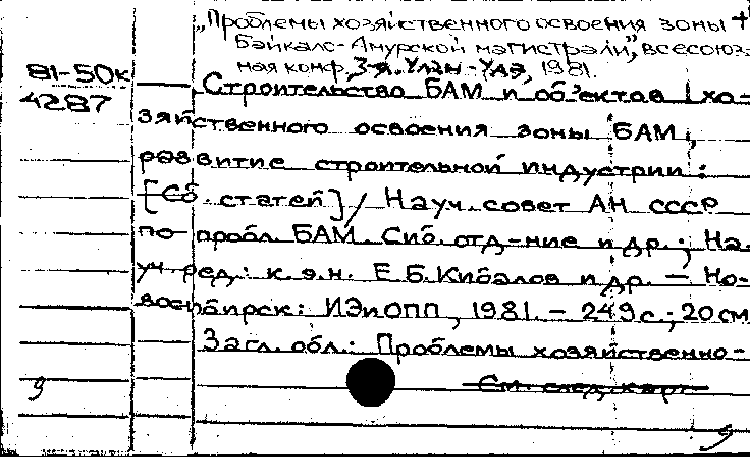 „Проблемы хозяйственного освоения зоны
Байкало-Амурской магистрали”, всесоюз-
ная конф., 3-я. Улан-Удэ, 1981.
81-50к
4287
Строительство БАМ и объектов хо-
зяйственного освоения зоны БАМ,
развитие строительной индустрии:
[Сб. статей] / Науч. совет АН СССР
по пробл. БАМ. Сиб. отд-ние и др.; На-
уч. ред.: к.э.н. Е.Б.Кибалов и др. — Но-
восибирск: ИЭиОПП, 1981. — 249с.; 20см
Загл. обл.: Проблемы хозяйственно-
См. след. карт.
9
9